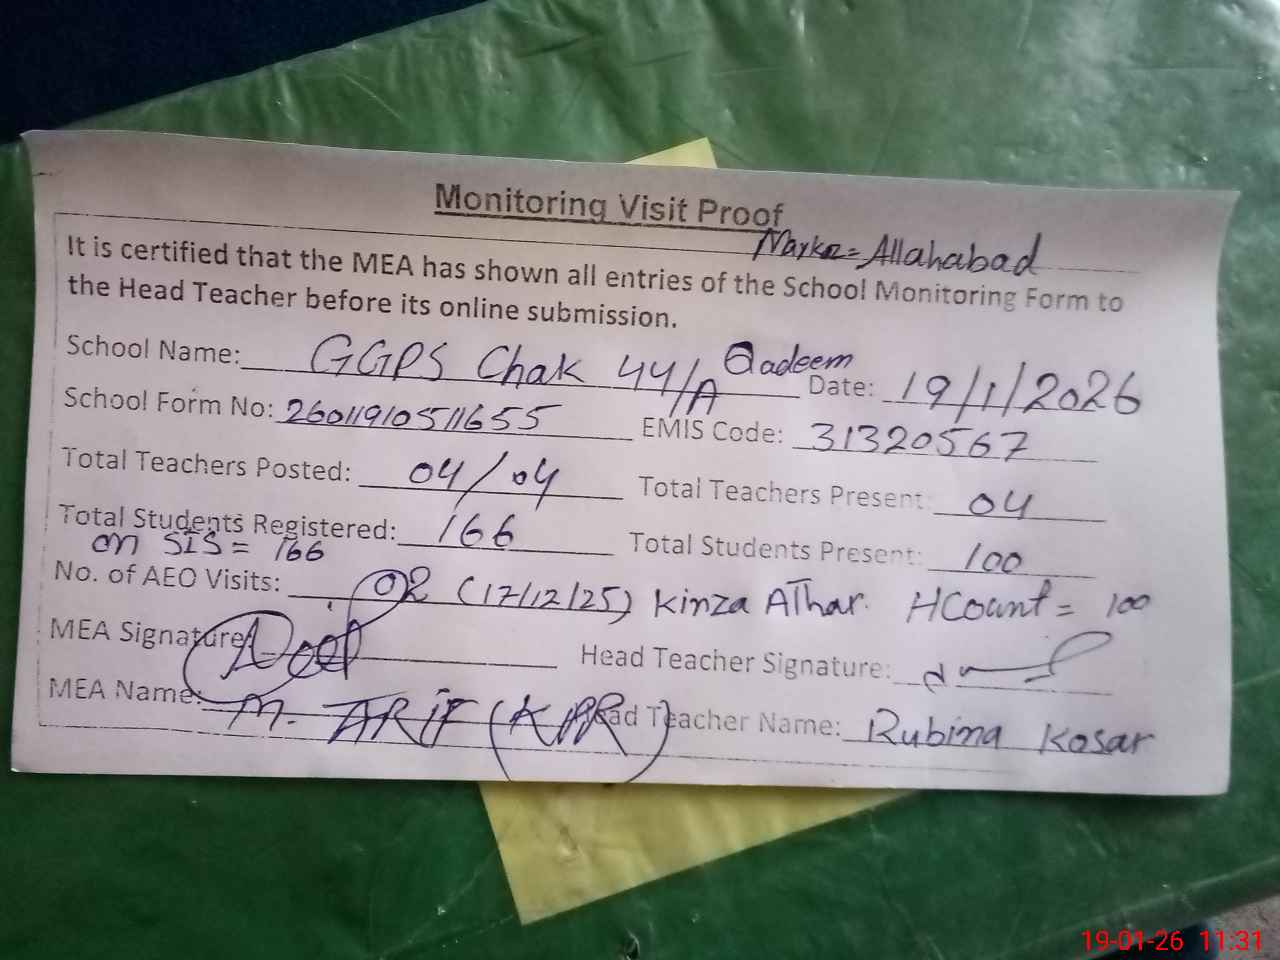 Monitoring Visit Proof
Markaz = Allahabad
It is certified that the MEA has shown all entries of the School Monitoring Form to
the Head Teacher before its online submission.
School Name: GGPS Chak 44/A Qadeem Date: 19/1/2026
School Form No: 26011910511655 EMIS Code: 31320567
Total Teachers Posted: 04/04 Total Teachers Present: 04
Total Students Registered: 166 Total Students Present: 100
on SIS = 166
No. of AEO Visits: 02 (17/12/25) Kinza AThar. HCount = 100
MEA Signature: Head Teacher Signature:
MEA Name: M. ARIF (KPR) Head Teacher Name: Rubina Kosar
19-01-26 11:31